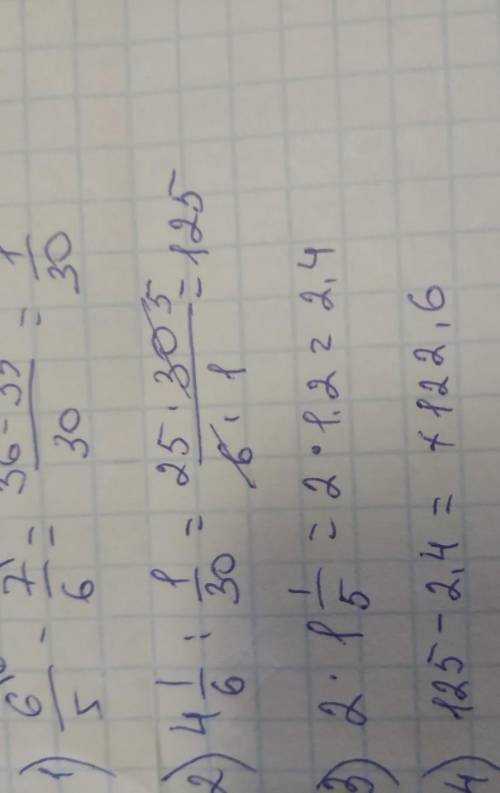 1) 6/5 - 7/6 = 36-35/30 = 1/30
2) 4 1/6 : 1/30 = 25·30 5/6·1 = 125
3) 2·1 1/5 = 2·1.2 = 2,4
4) 125-2,4 = +122,6